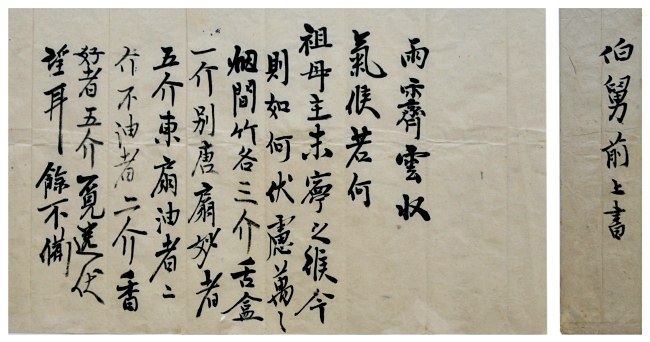 伯舅前上書
雨霽雲収
氣候若何
祖母主未寧之候今
則如何伏慮萬〻
烟間竹各三介舌盒
一介別唐扇妙者
五介東扇油者二
介不油者二介香
好者五介覓送伏
望耳 餘不備